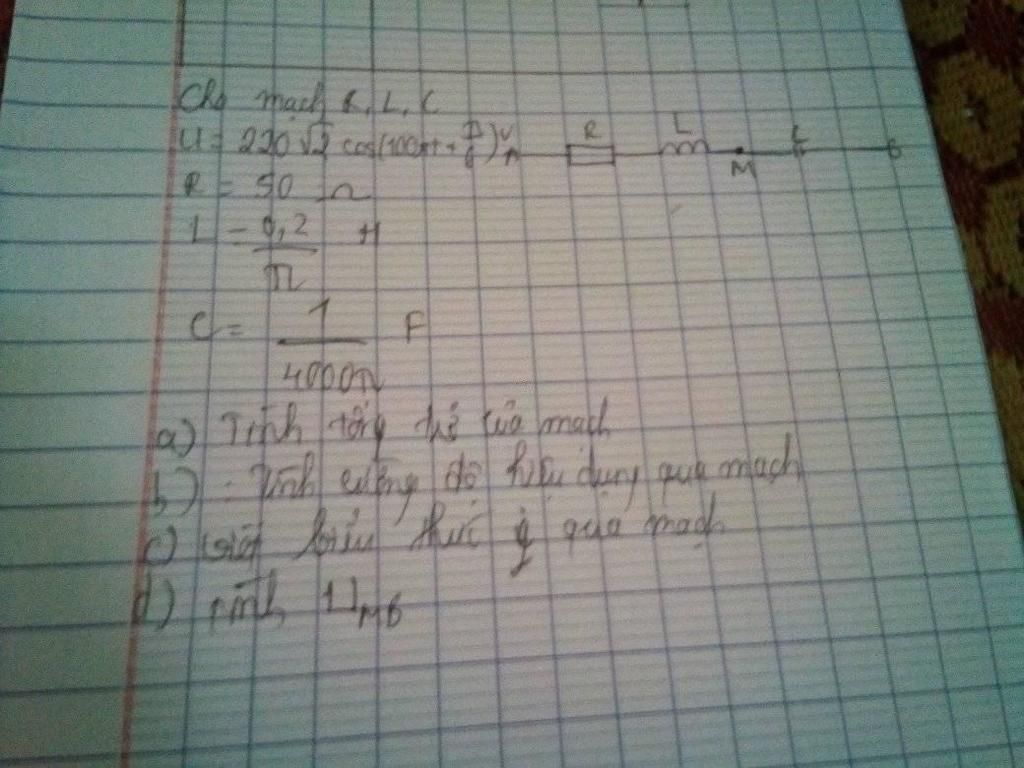 Cho mạch R, L, C
U = 220√2 cos(100πt + π/6) V A R L M C B
R = 50 Ω
L = 0,2/π H
C = 1/4000π F
a) Tính tổng trở của mạch
b) : Tính cường độ hiệu dụng qua mạch
c) viết biểu thức i qua mạch
d) tính U_MB